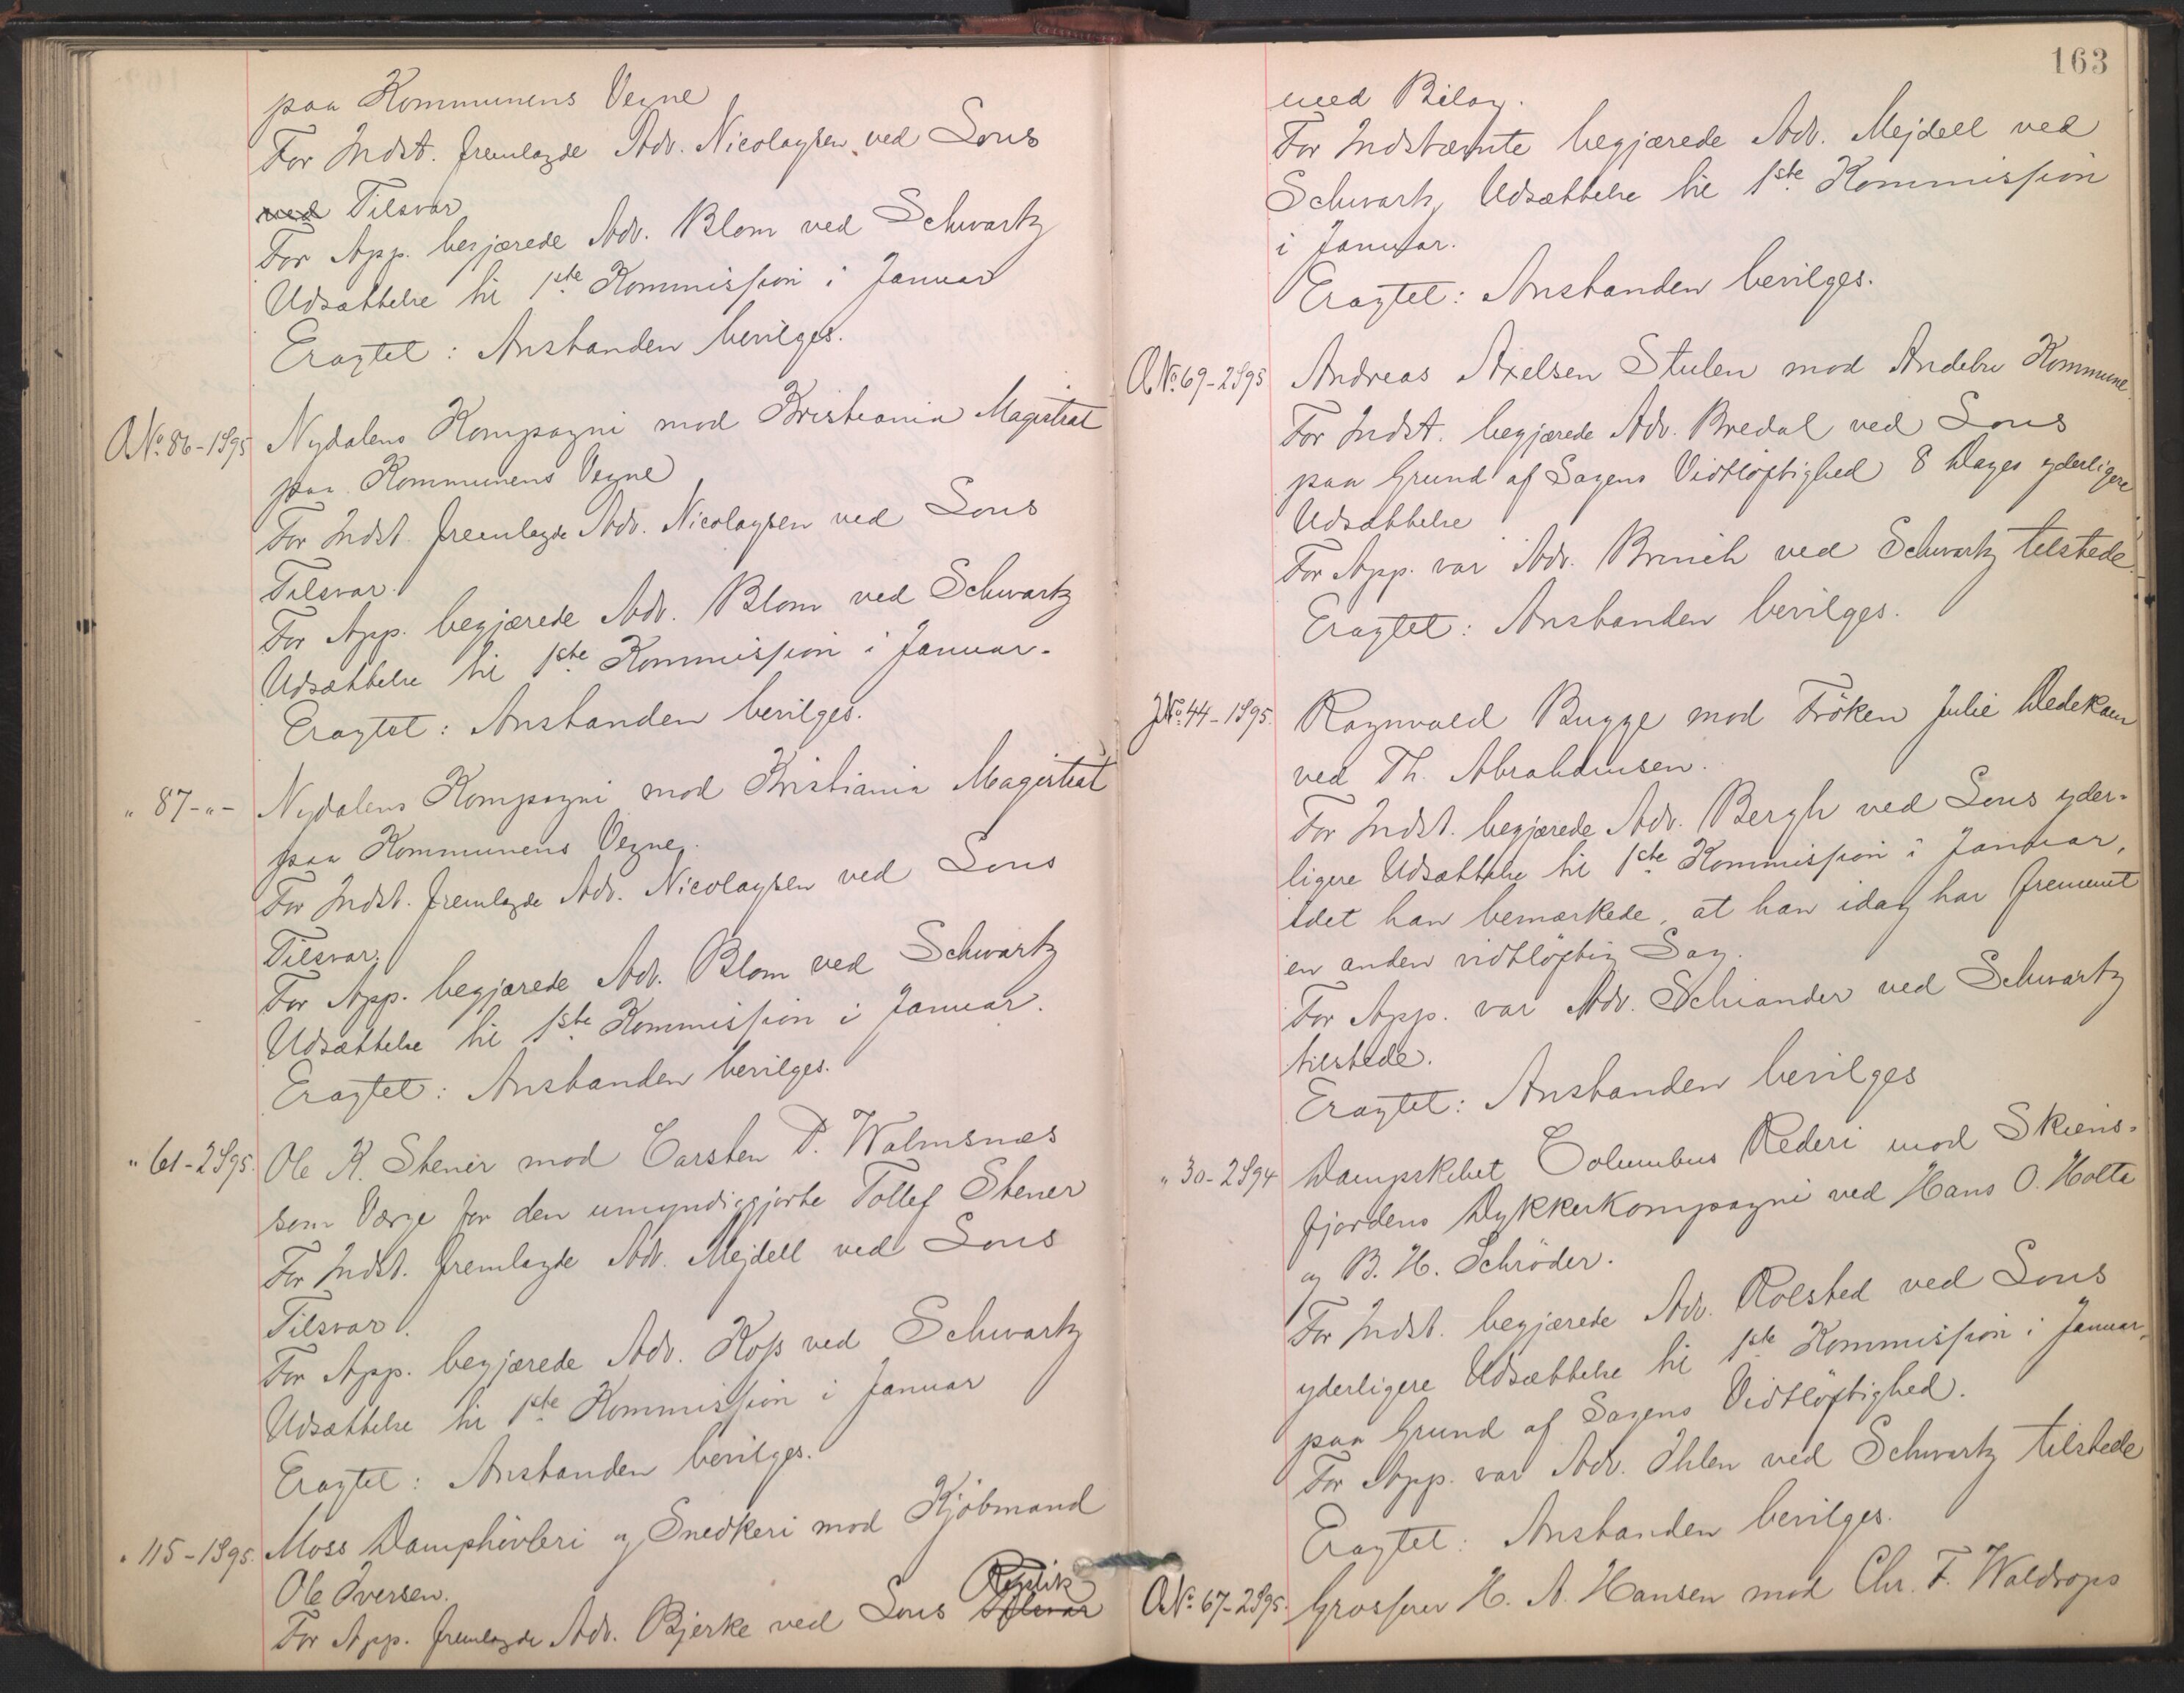 paa Kommunens Vegne
For Indst. fremlagde Adv. Nicolaysen ved Sous
ved Tilsvar
For App. begjærede Adv. Blom ved Schwartz
Udsættelse til 1ste Kommission i Januar
Eragtet: Anstanden bevilges.
A No. 86-1S95 Nydalens Kompagni mod Kristiania Magistrat
paa Kommunens Vegne
For Indst. fremlagde Adv. Nicolaysen ved Sous
Tilsvar.
For App. begjærede Adv. Blom ved Schwartz
Udsættelse til 1ste Kommission i Januar.
Eragtet: Anstanden bevilges.
" 87-"- Nydalens Kompagni mod Kristiania Magistrat
paa Kommunens Vegne.
For Indst. fremlagde Adv. Nicolaysen ved Sous
Tilsvar.
For App. begjærede Adv. Blom ved Schwartz
Udsættelse til 1ste Kommission i Januar.
Eragtet: Anstanden bevilges.
" 61-2S95. Ole K. Stener mod Carsten P. Walmsnæs
som Værge for den umyndiggjorte Tollef Stener
For Indst. fremlagde Adv. Mejdell ved Sous
Tilsvar.
For App. begjærede Adv. Koss ved Schwartz
Udsættelse til 1ste Kommission i Januar
Eragtet: Anstanden bevilges.
" 115-1S95. Moss Damphøvleri og Snedkeri mod Kjöbmand
Ole Iversen.
For App. fremlagde Adv. Bjerke ved Sous Tilsvar Replik
163
med Bilag.
For Indstævnte begjærede Adv. Mejdell ved
Schwartz Udsættelse til 1ste Kommission
i Januar.
Eragtet: Anstanden bevilges.
A No. 69-2S95 Andreas Axelsen Stulen mod Andebu Kommune
For Indst. begjærede Adv. Bredal ved Sous
paa Grund af Sagens Vidtlöftighed 8 Dages yderligere
Udsættelse
For App. var Adv. Bruuch ved Schwartz tilstede.
Eragtet: Anstanden bevilges.
J No. 44-1S95. Ragnvald Bugge mod Fröken Julie Dedekam
ved Th. Abrahamsen.
For Indst. begjærede Adv. Bergh ved Sous yder-
ligere Udsættelse til 1ste Kommission i Januar,
idet han bemærkede, at han idag har fremmet
en anden vidtlöftig Sag.
For App. var Adv. Schiander ved Schwartz
tilstede.
Eragtet: Anstanden bevilges
" 30-2S94 Dampskibet Columbus Rederi mod Skiens-
fjordens Dykkerkompagni ved Hans O. Holta
og B. H. Schröder.
For Indst. begjærede Adv. Rolsted ved Sous
yderligere Udsættelse til 1ste Kommission i Januar,
paa Grund af Sagens Vidtlöftighed.
For App. var Adv. Ihlen ved Schwartz tilstede
Eragtet: Anstanden bevilges.
A No. 67-2S95. Grosserer H. A. Hansen mod Chr. F. Waldrops